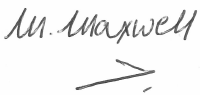 M. Maxwell